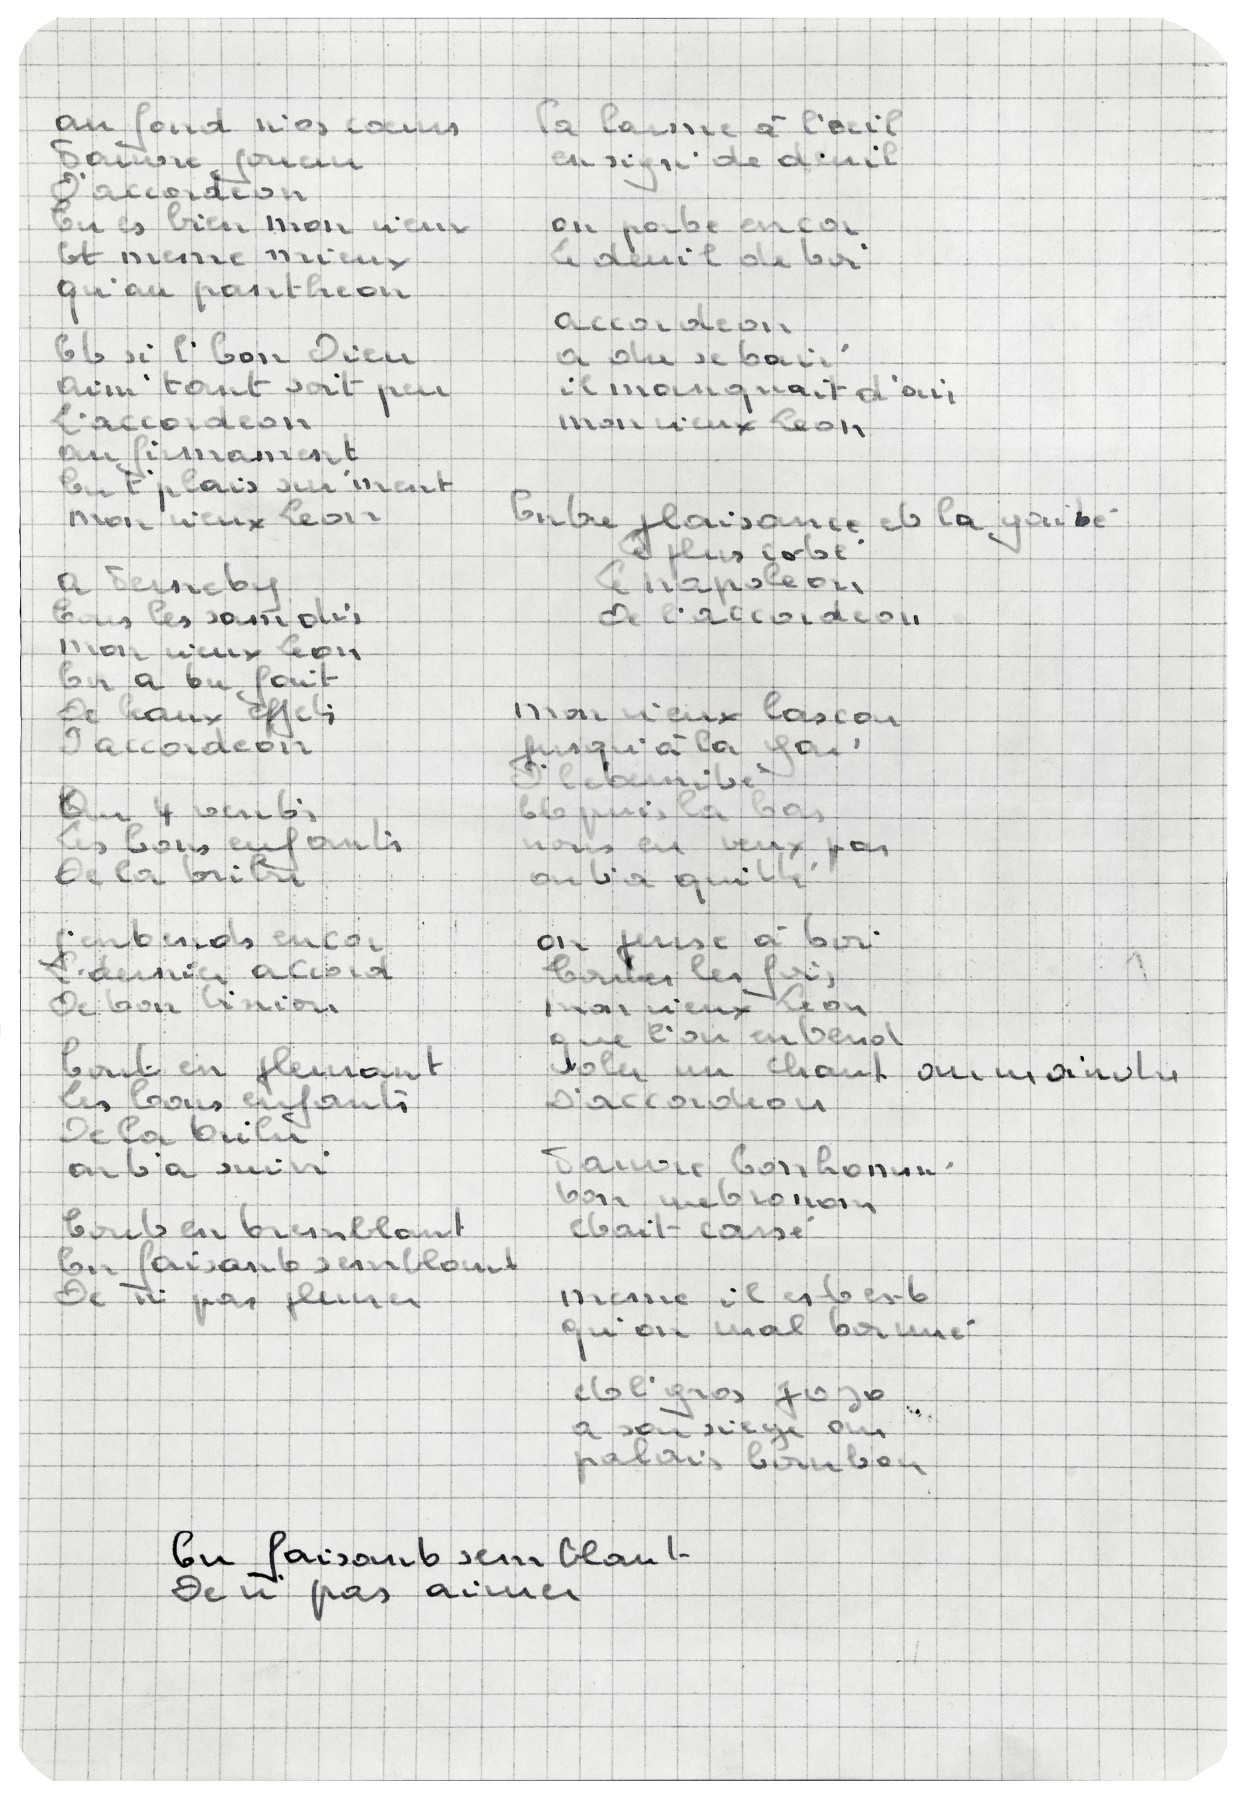 au fond d'nos cœurs
Pauvre joueur
D'accordeon
tu es bien mon vieux
Et meme mieux
qu'au pantheon
Et si l' bon Dieu
aim' tant soit peu
L'accordeon
au firmament
tu t' plais sur'ment
mon vieux Leon
a
tous les samedis
mon vieux Leon
tu a tu fait
De beaux effets
D'accordeon
Au 4 vents
Les bons enfants
De la tribu
j'entends encor
L'dernier accord
De ton
tout en pleurant
Les bons enfants
De la tribu
ont'a suivi
tout en tremblant
En faisant semblant
De n' pas pleurer
la larme à l'œil
en sign' de deuil
on porte encor
Le deuil de toi
accordeon
a du se tair'
il manquait d'air
mon vieux Leon
Entre plaisance et la gaité
Le plus coté
Le napoleon
De l'accordeon
mon vieux lascou
jusqu'à la gar'
D' l'eternité
Et puis la bas
nous en veux pas
ont'a quitté
on pense à toi
toutes les fois
mon vieux Leon
que l'on entend
voler un chant au moindre
D'accordeon
Pauvre bonhomm'
ton metronom
etait cassé
meme il est est
qu'on mal tourné
et l' gros jojo
a son siege au
palais bourbon
En faisant semblant
De n' pas aimer